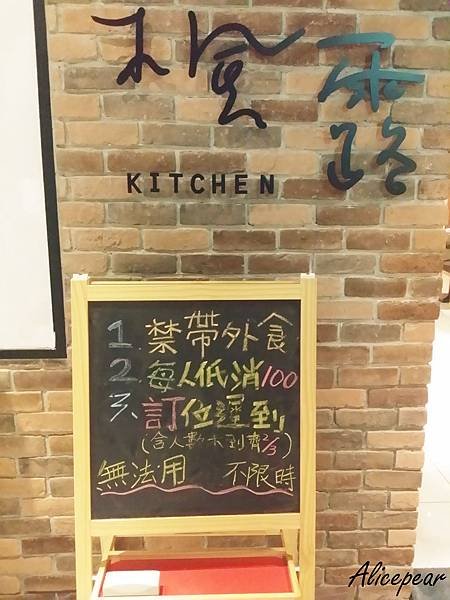 楓露
KITCHEN
1. 禁帶外食
2. 每人低消100
3. 訂位遲到
(含人數未到齊2/3)
無法用 不限時
Alicepear